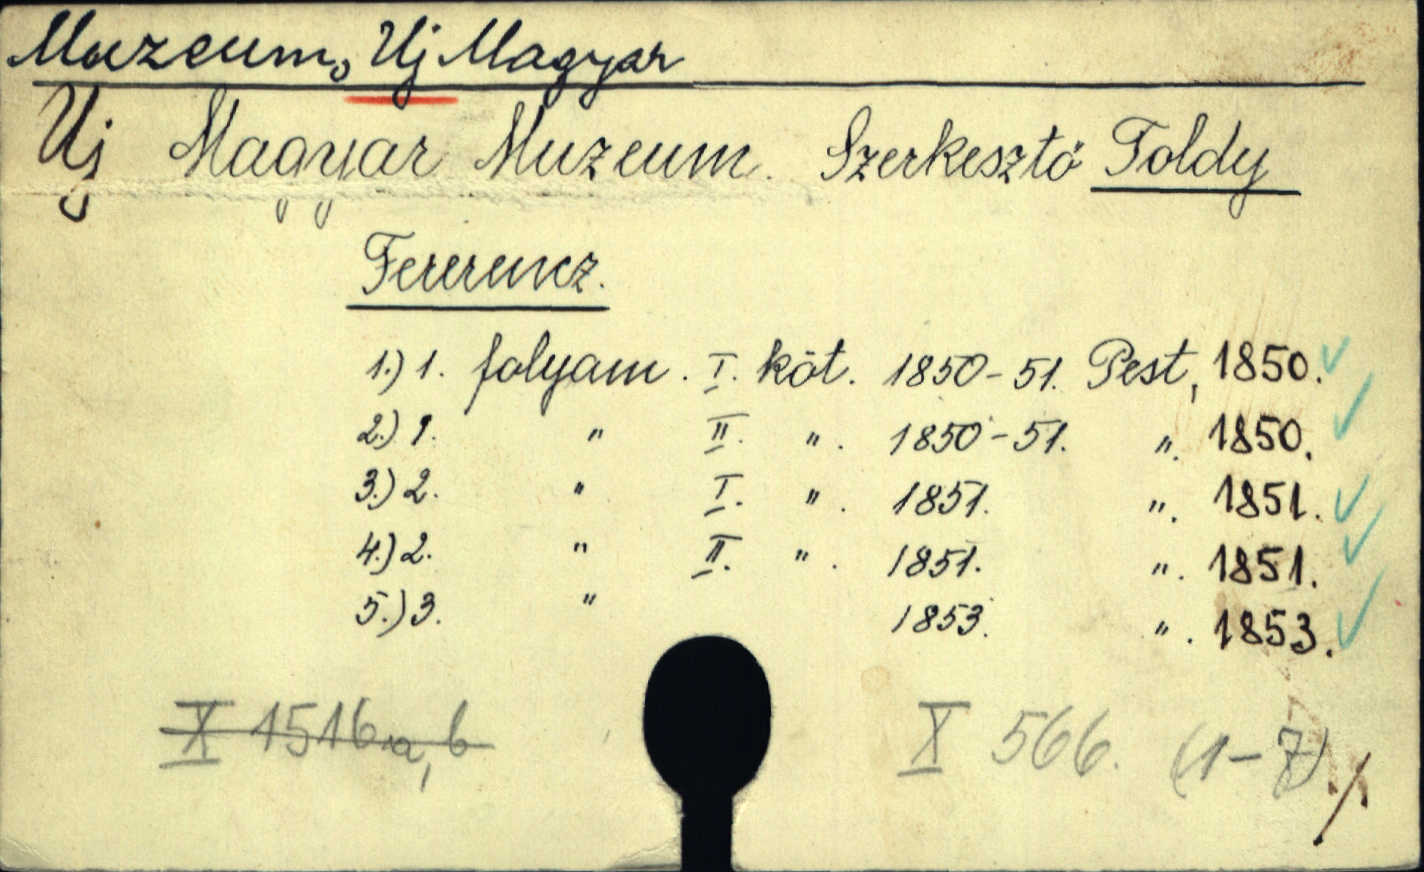 Muzeum, Uj Magyar
Uj Magyar Muzeum. Szerkesztő Toldy
Ferencz.
1.) 1. folyam. I. köt. 1850-51. Pest, 1850.
2.) 1. " II. ". 1850-51. ". 1850.
3.) 2. " I. ". 1851. ". 1851.
4.) 2. " II. ". 1851. ". 1851.
5.) 3. " 1853. ". 1853.
X 1516 a, b X 566. (1-7)